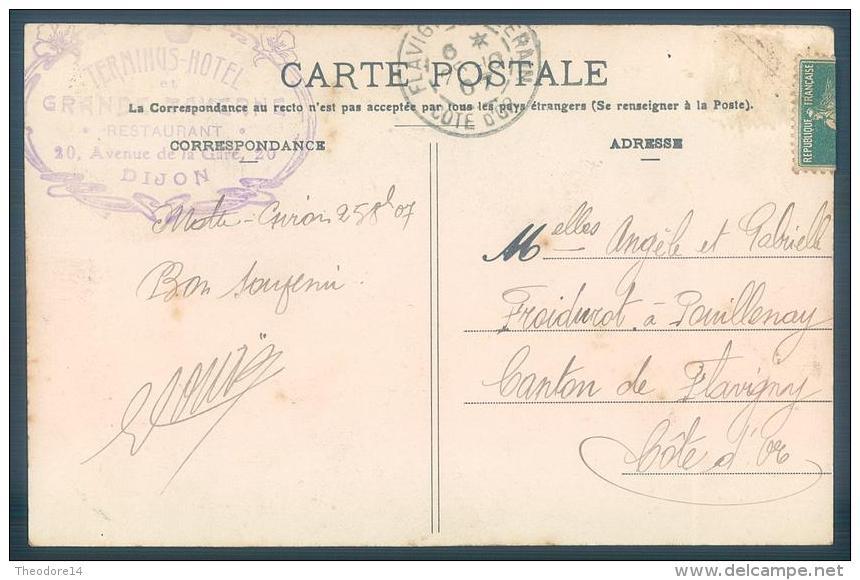 TERMINUS-HOTEL
et
GRANDE TAVERNE
RESTAURANT
20, Avenue de la Gare, 20
DIJON
CÔTE D'OR
CARTE POSTALE
La Correspondance au recto n'est pas acceptée par tous les pays étrangers (Se renseigner à la Poste).
CORRESPONDANCE
07
Bon souvenir
ADRESSE
REPUBLIQUE FRANÇAISE
Melles Angèle et Gabrielle
Froidurot à Pouillenay
Canton de Flavigny
Côte d'Or
Theodore14
www.delcampe.net